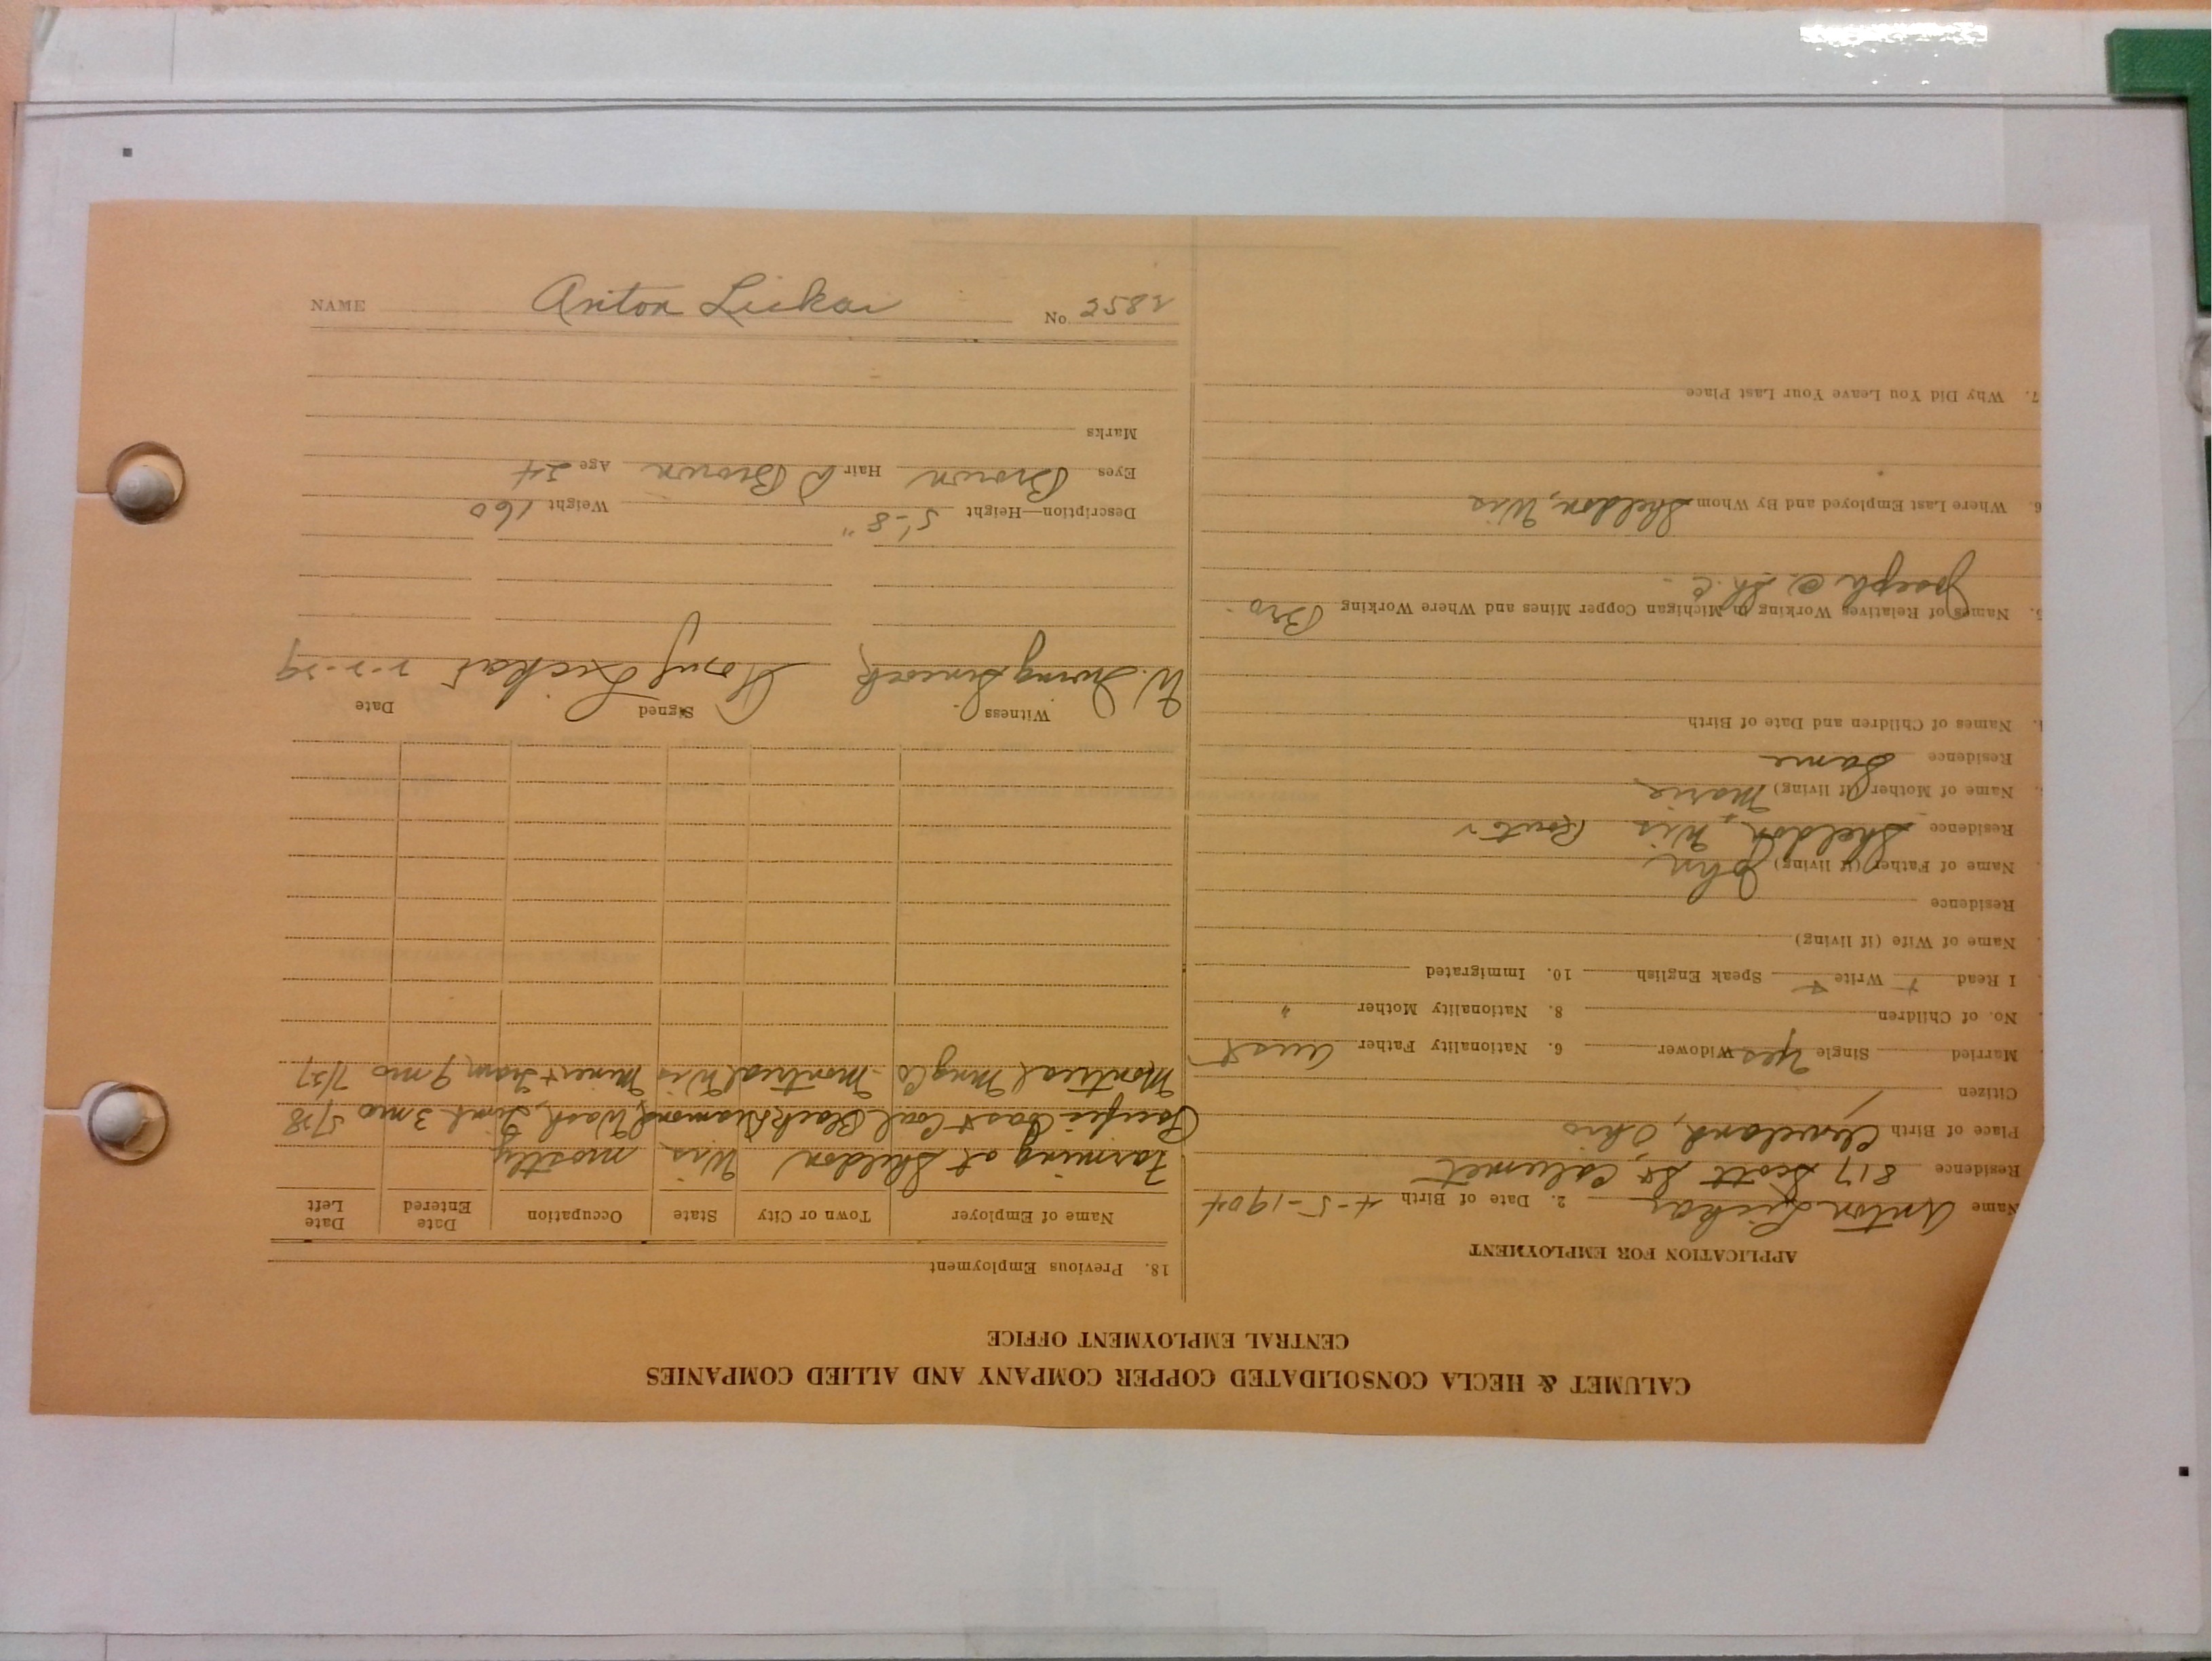 CALUMET & HECLA CONSOLIDATED COPPER COMPANY AND ALLIED COMPANIES
CENTRAL EMPLOYMENT OFFICE
APPLICATION FOR EMPLOYMENT
Name Anton Lickar 2. Date of Birth 4-5-1904
Residence 817 Scott St, Calumet
Place of Birth Cleveland, Ohio
Citizen
Married Single Yes Widower 6. Nationality Father Aust
No. of Children 8. Nationality Mother "
I Read + Write + Speak English 10. Immigrated
Name of Wife (if living)
Residence
Name of Father (if living) John
Residence Sheldon, Wis
Name of Mother (if living) Marie
Residence Same
Names of Children and Date of Birth
Names of Relatives Working in Michigan Copper Mines and Where Working Bro
Joseph
6. Where Last Employed and By Whom Sheldon, Wis
7. Why Did You Leave Your Last Place
18. Previous Employment
Name of Employer Town or City State Occupation Date Entered Date Left
Farming at Sheldon Wis mostly
Pacific Coast Coal Black Diamond Wash, 3 mo 5/28
Montreal Mng Co Montreal Wis Miner + Tram 9 mo 7/27
Witness Signed Date
W. Irving
Description—Height 5'-8" Weight 160
Eyes Brown Hair D Brown Age 24
Marks
NAME Anton Lickar No 2582